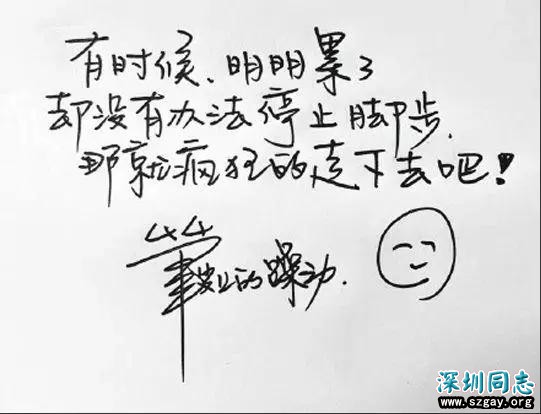 有时候、明明累了
却没有办法停止脚步.
那就疯狂的走下去吧！
毕业的躁动.
深圳同志
www.szgay.org